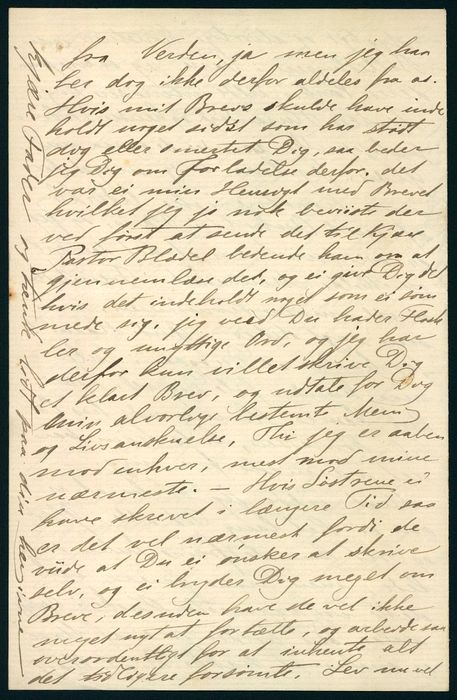 fra Verden, ja men jeg har
ler dog ikke derfor aldeles fra os.
Hvis mit Brevs skulde have inde
holdt noget sidst som har stødt
dog eller smertet Dig, saa beder
jeg Dig om Forladelse derfor, det
var ei min Hensigt med Brevet
hvilket jeg jo nok beviiste der
ved først at sende det til kjære
Pastor Blædel bedende ham om at
gjennemlæse det, og ei give Dig det
hvis det indeholdt noget som ei søm
mede sig. jeg veed Du hader
og unyttige Ord, og jeg har
derfor kun villet skrive Dig
et klart Brev, og udtale for Dig
min alvorlige bestemte Mening
og Livsanskuelse, Thi jeg er aaben
mod enhver, mest mod mine
nærmeste. — Hvis Søstrene ei
have skrevet i længere Tid saa
er det vel nærmest fordi de
viide at Du ei ønsker at skrive
selv, og ei bryder Dig meget om
Breve, desuden have de vel ikke
meget nyt at fortælle, og arbeide saa
overordentligt for at indhente alt
det tidligere forsømte. Lev nu vel
kjære Fader og tænk lidt paa din